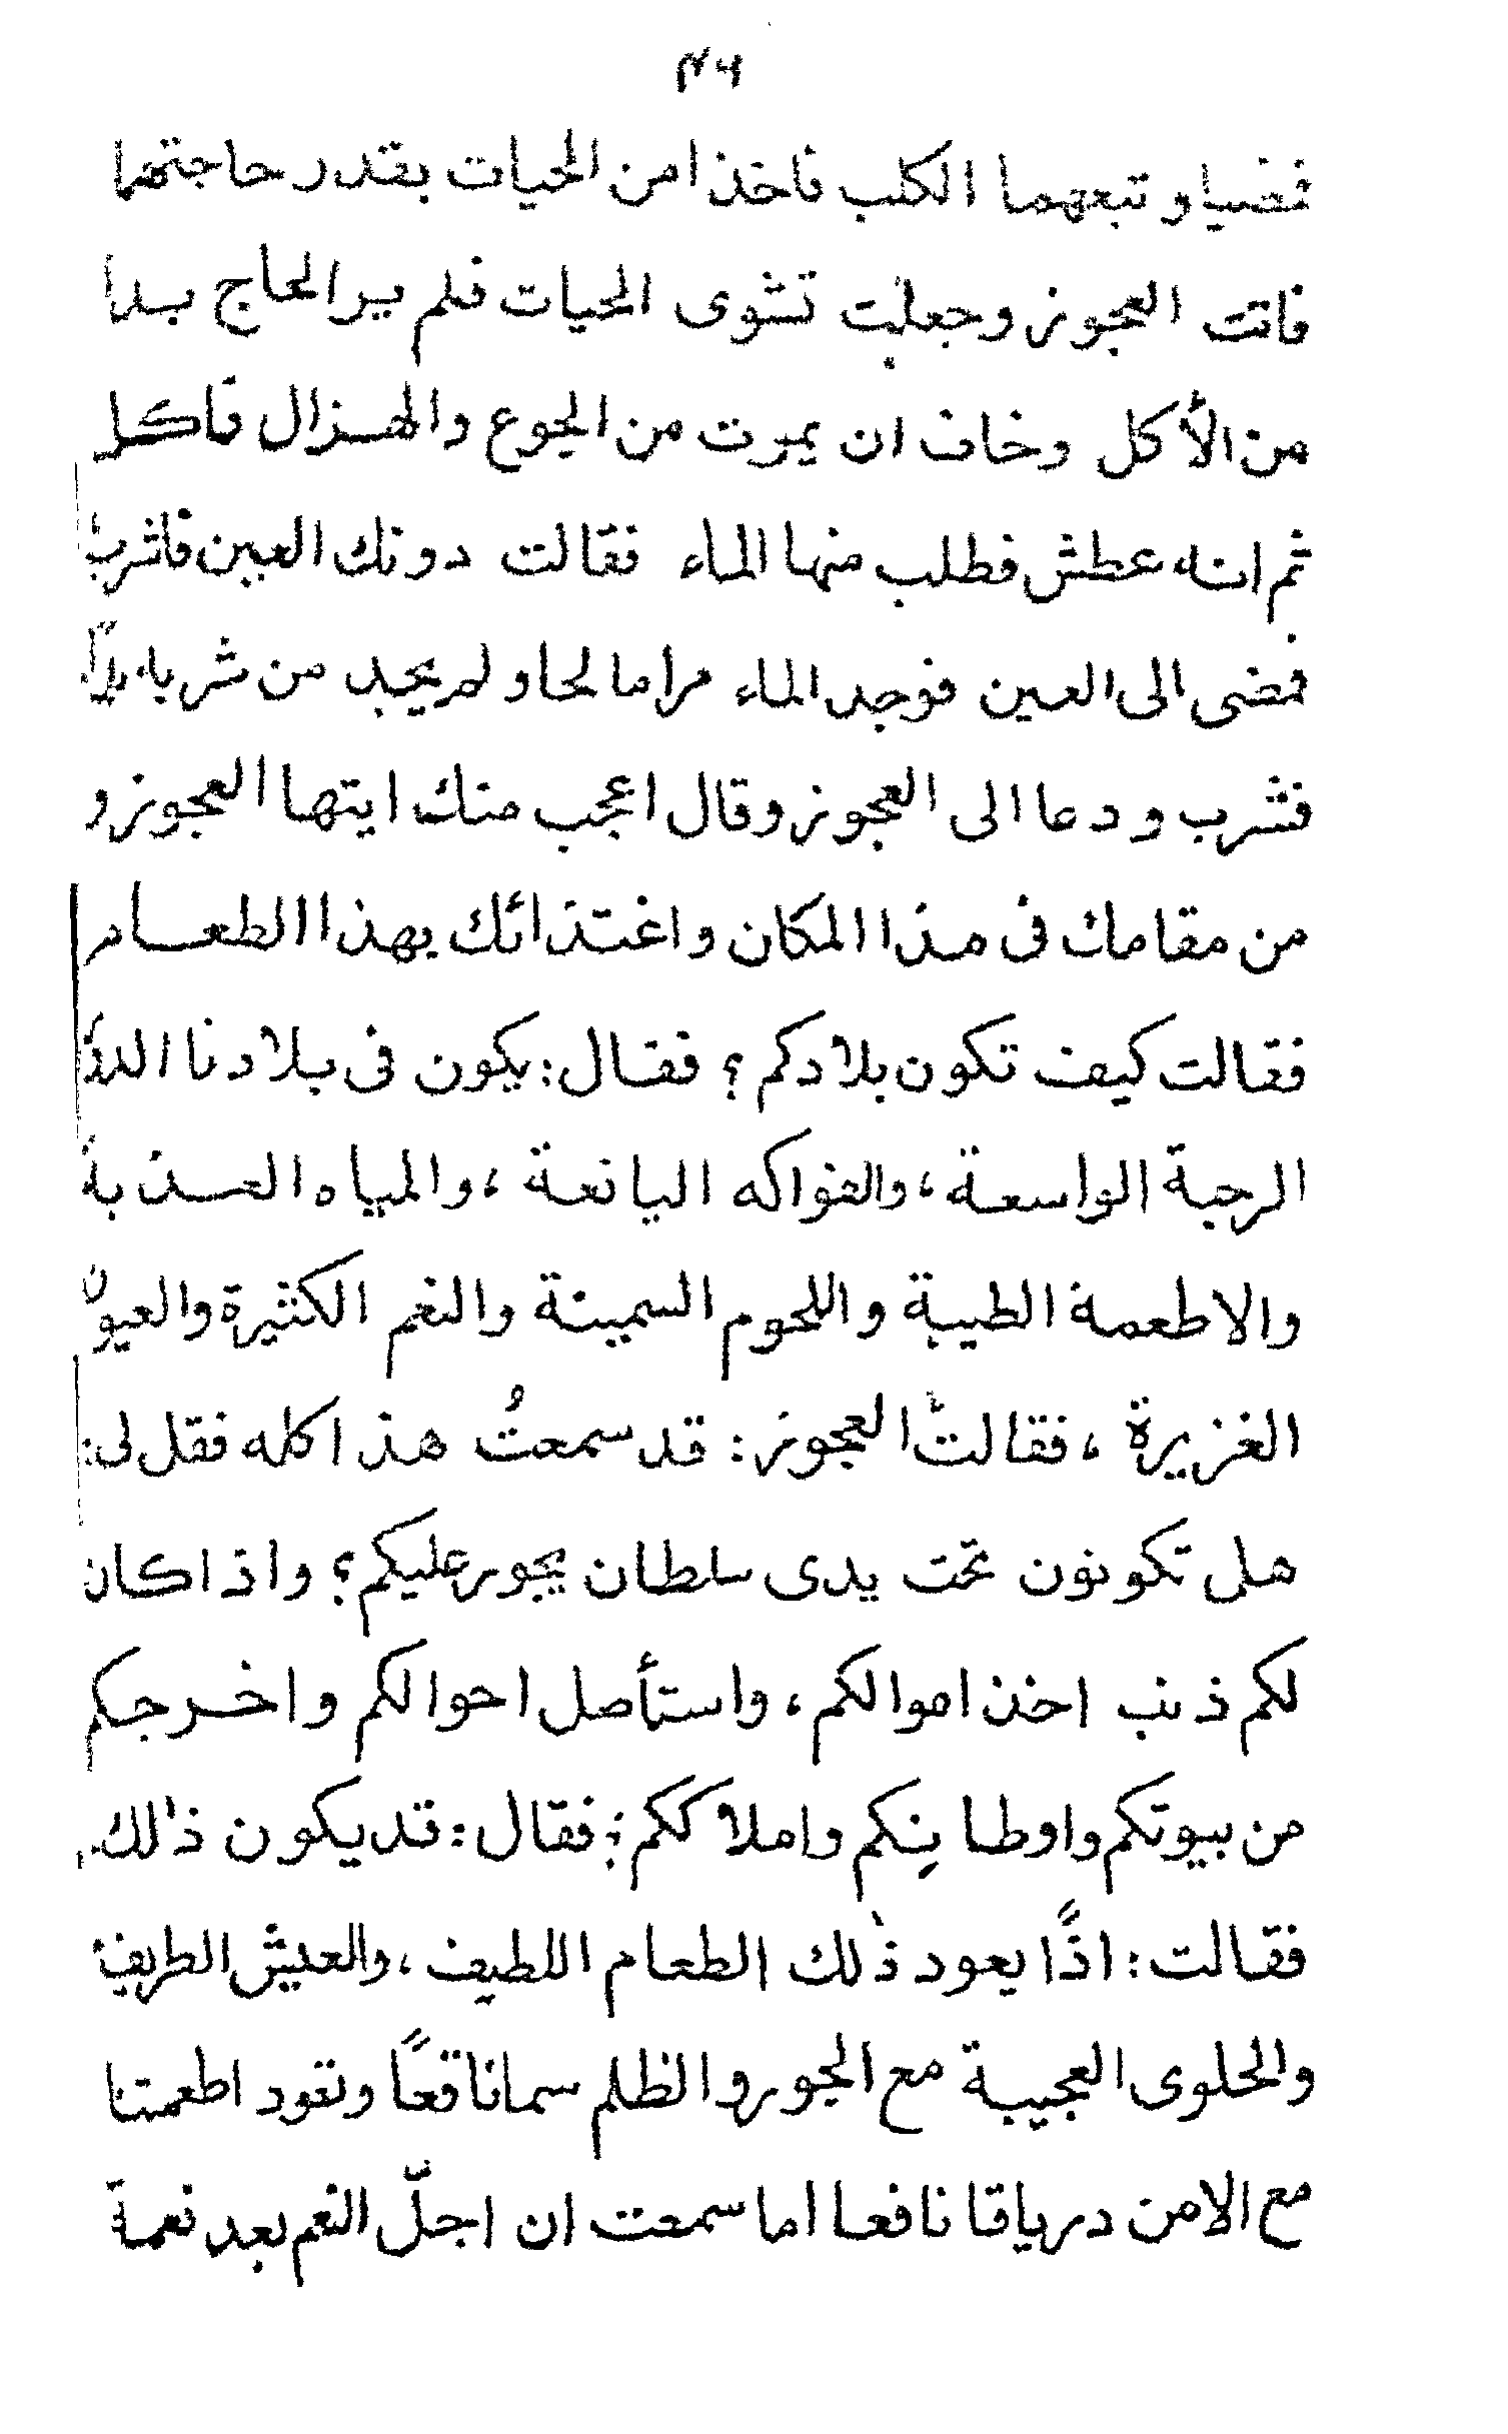 فمضيا و تبعهما الكلب فاخذا من الحيات بقدر حاجتهما
فاتت العجوز وجعلت تشوى الحيات فلم ير الحاج بدا
من الأكل وخاف ان يموت من الجوع والهزال فاكل
ثم انه عطش فطلب منها الماء فقالت دونك العين فاشرب
فمضى الى العين فوجد الماء مرا مالحا و لم يجد من شربه بدّا
فشرب و دعا الى العجوز وقال اعجب منك ايتها العجوز و
من مقامك فى هذا المكان واغتذائك بهذا الطعام
فقالت كيف تكون بلادكم؟ فقال: يكون فى بلادنا الدور
الرحبة الواسعة، والفواكه اليانعة، والمياه العذبة
والاطعمة الطيبة واللحوم السمينة والنغم الكثيرة والعيون
الغزيرة، فقالت العجوز: قد سمعتُ هذا كله فقل لى:
هل تكونون تحت يدى سلطان يجور عليكم؟ واذا كان
لكم ذنب اخذ اموالكم، واستأصل احوالكم واخرجكم
من بيوتكم واوطانِكم واملاككم؟ فقال: قد يكون ذلك،
فقالت: اذًا يعود ذلك الطعام اللطيف، والعيش الطريف
والحلوى العجيبة مع الجور والظلم سما ناقعًا وتعود اطعمتنا
مع الامن درياقا نافعا اما سمعت ان اجلّ النعم بعد نعمة